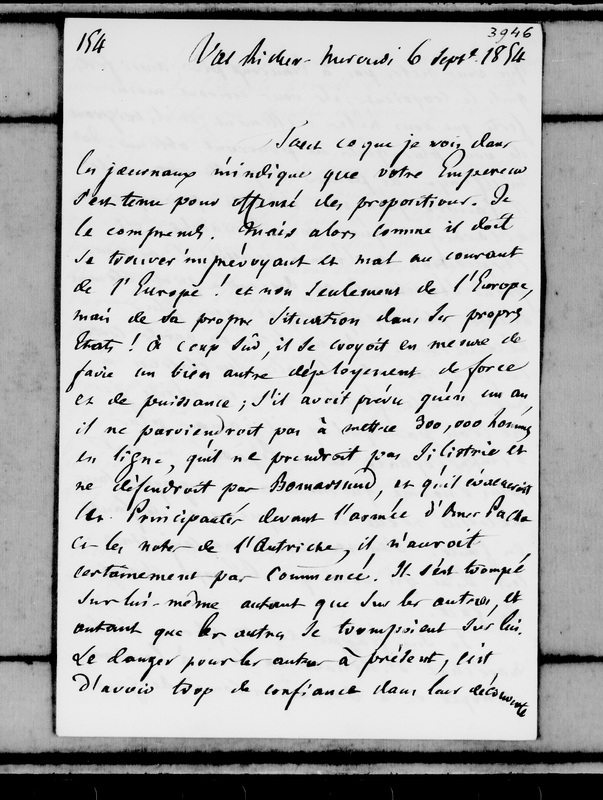 154
3946
Val Richer – Mercredi 6 Septe. 1854
Tout ce que je vois dans
les journaux m'indique que votre Empereur
s'est tenu pour offensé des propositions. Je
le comprends. Mais alors comme il doit
se trouver imprévoyant et mal au courant
de l'Europe ! et non seulement de l'Europe,
mais de sa propre situation dans ses propres
Etats ! à coup sûr, il se croyoit en mesure de
faire un bien autre déployement de force
et de puissance ; s'il avoit prévu qu'en un an
il ne parviendroit pas à mettre 300,000 hommes
en ligne, qu'il ne prendroit pas Silistrie et
ne défendroit pas Bomarsund, et qu'il évacueroit
les Principautés devant l'armée d'Omer Pacha
et les notes de l'Autriche, il n'auroit
certainement pas commencé. Il s'est trompé
sur lui-même autant que sur les autres, et
autant que les autres se trompoient sur lui.
Le danger pour les autres à présent, c'est
d'avoir trop de confiance dans leur découverte